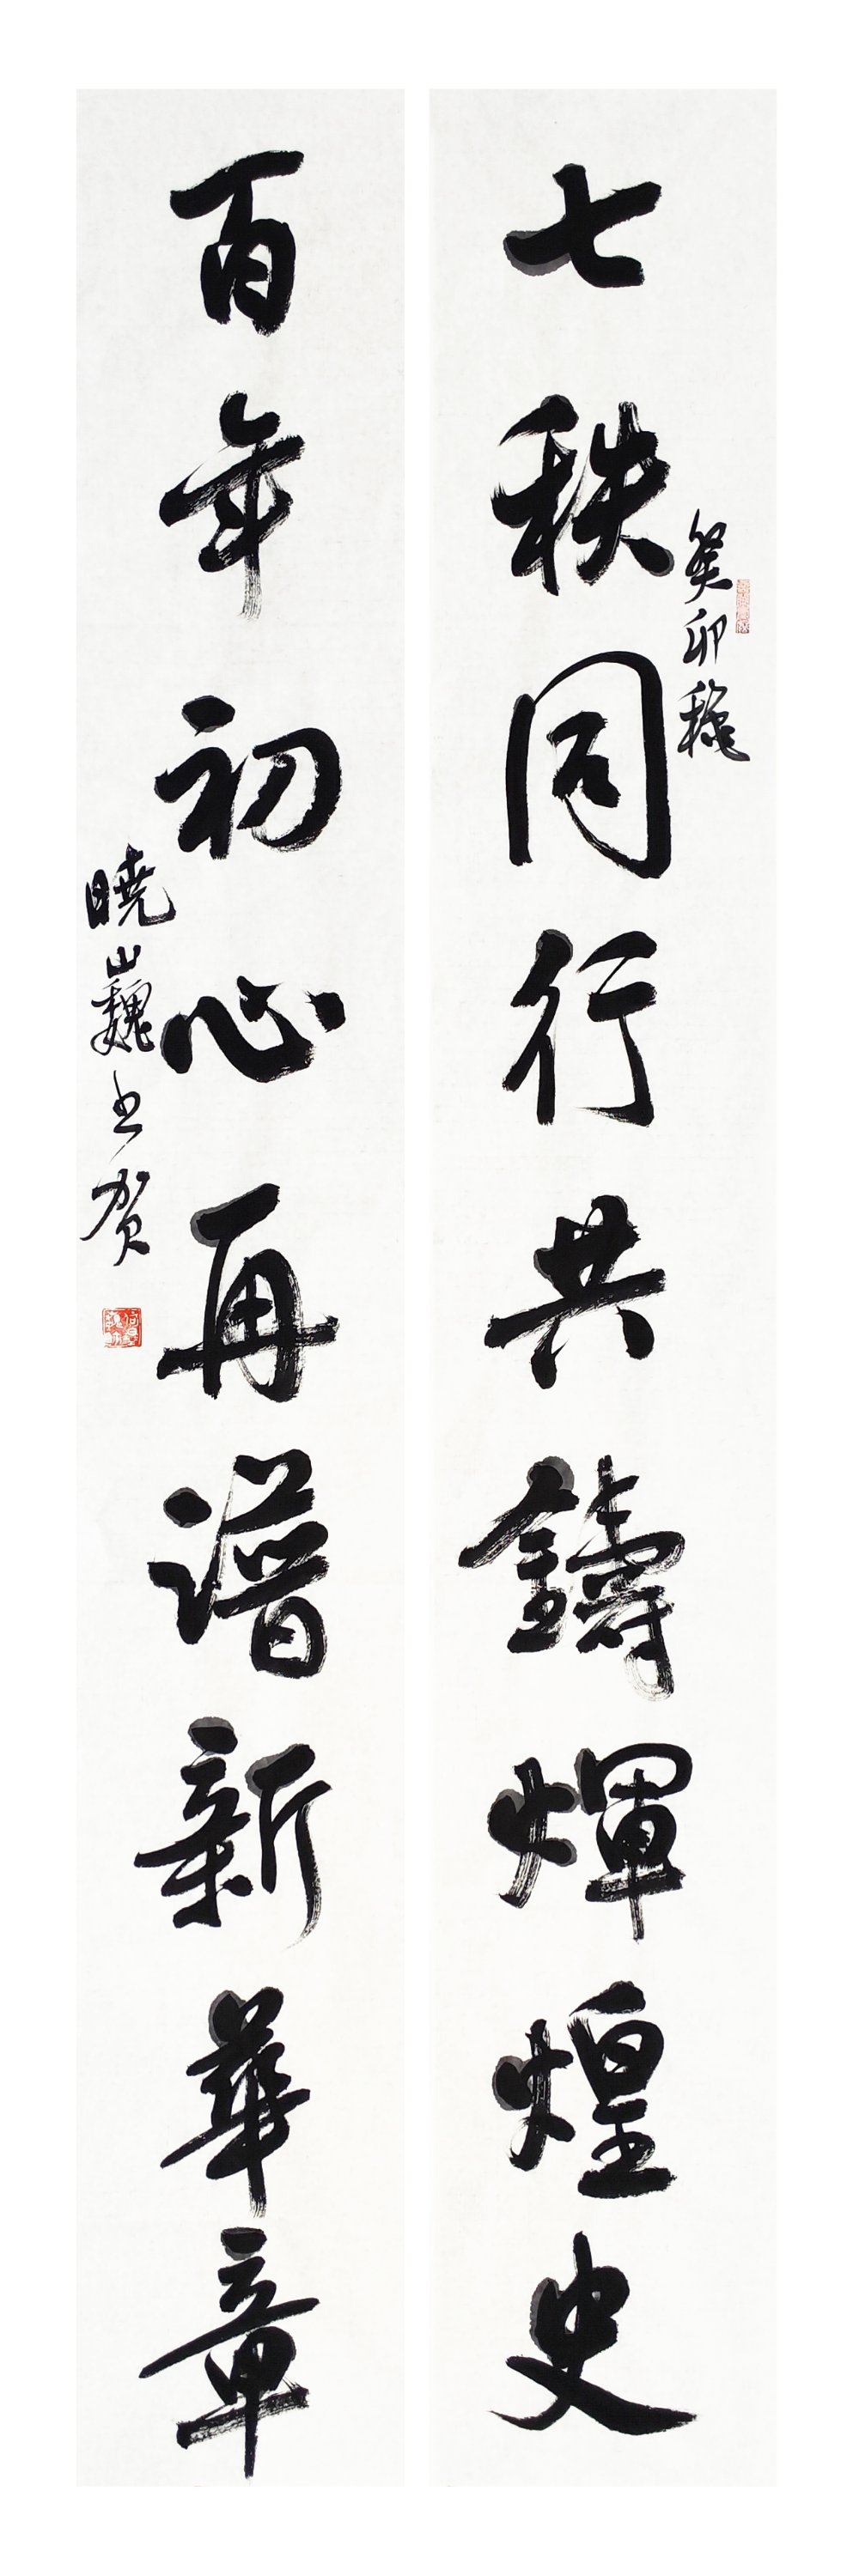 七秩同行共鑄輝煌史
癸卯秋
百年初心再譜新華章
曉巍書贺